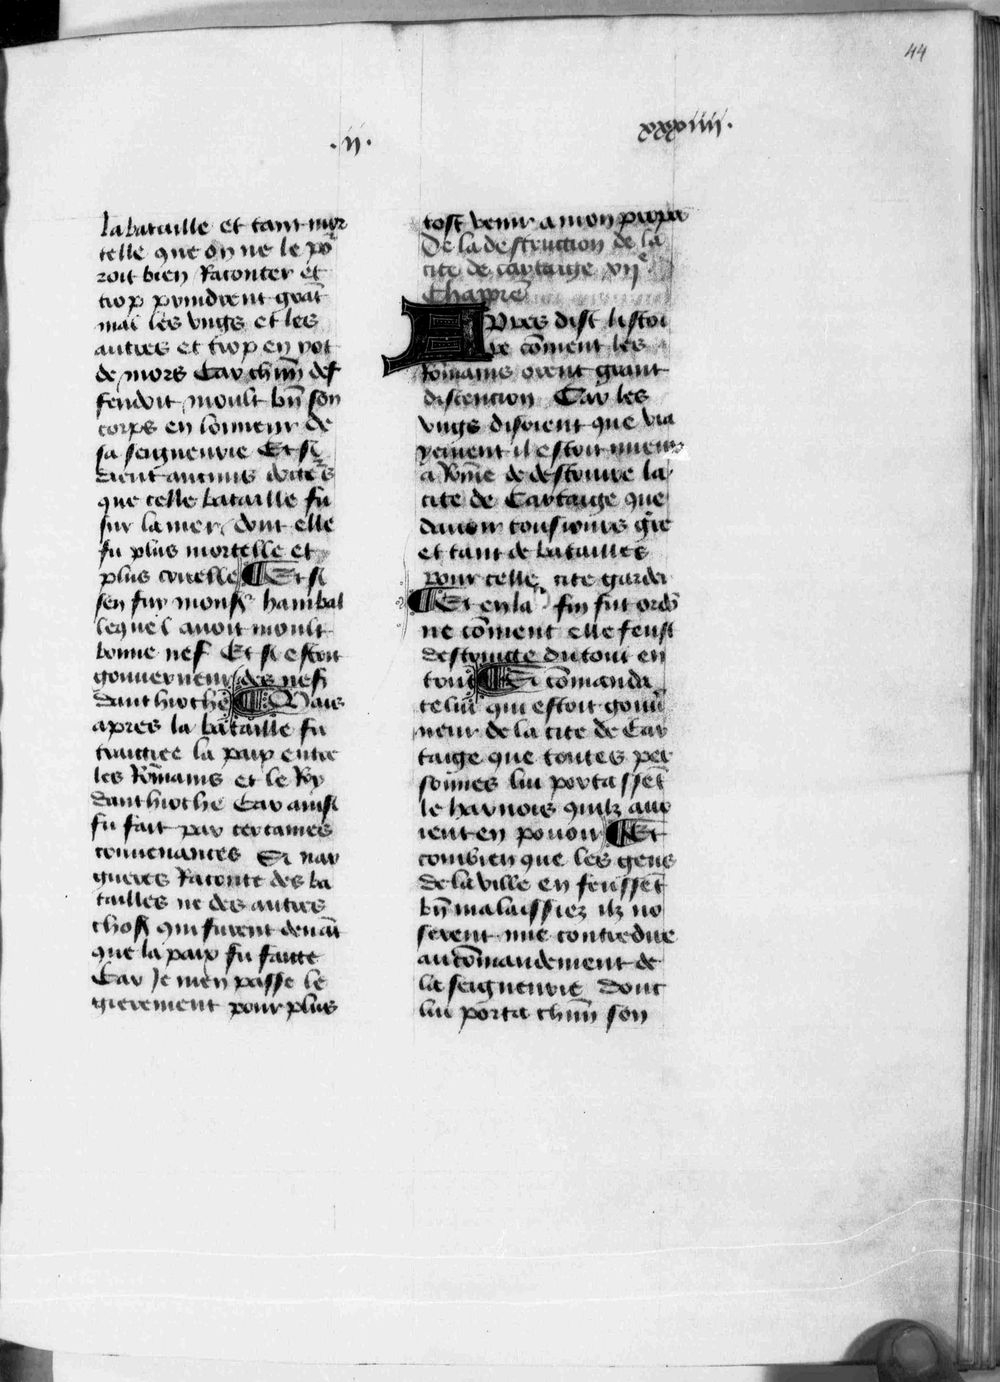 44
.ii.
xxxiiii.
la bataille et tant mor
telle que on ne le po
roit bien Raconter et
trop prindrent grāt
mal les vngs et les
autres et trop en y ot
de mors Car chūn def
fendoit moult bn̄ son
corps en lonneur de
sa seigneurie Et si
dient aucuns docte͛s
que celle bataille fu
sur la mer dont elle
fu plus mortelle et
plus cruelle ¶ Et si
sen fuy mons͛ hanibal
lequel auoit moult
bonne nef Et si estoit
gouuerneur des nefz
danthioche ¶ Mais
apres la bataille fu
traictiee la paix entre
les Rōmains et le Roy
danthioche Car ainsi
fu fait par certaines
conuenances Si nar
gueres Raconte des ba
tailles ne des autres
choses qui furent deuāt
que la paix fu faicte
Car Je men passe le
gierement pour plus
tost venir a mon propos
De la destruction de la
cite de cartaige xii^e
Chappre
Apres dist listoi
re cōment les
Rōmains orent grant
discencion Car les
vngs disoient que vra
yement il estoit mieux
a Rōme de destruire la
cite de Cartaige que
dauoir tousiours gr̄e
et tant de batailles
pour celle cite garder
¶ Et en la fin fut ordō
ne cōment elle feust
destruicte du tout en
tout ¶ Si cōmanda
celui qui estoit gouū
neur de la cite de Car
taige que toutes per
sonnes lui portassēt
le harnois quilz aur
ient en pouoir ¶ Et
combien que les gens
de la ville en feussēt
bn̄ malaissiez ilz no
serent mie contredire
au cōmandement de
la seigneurie dont
lui porta chūn son